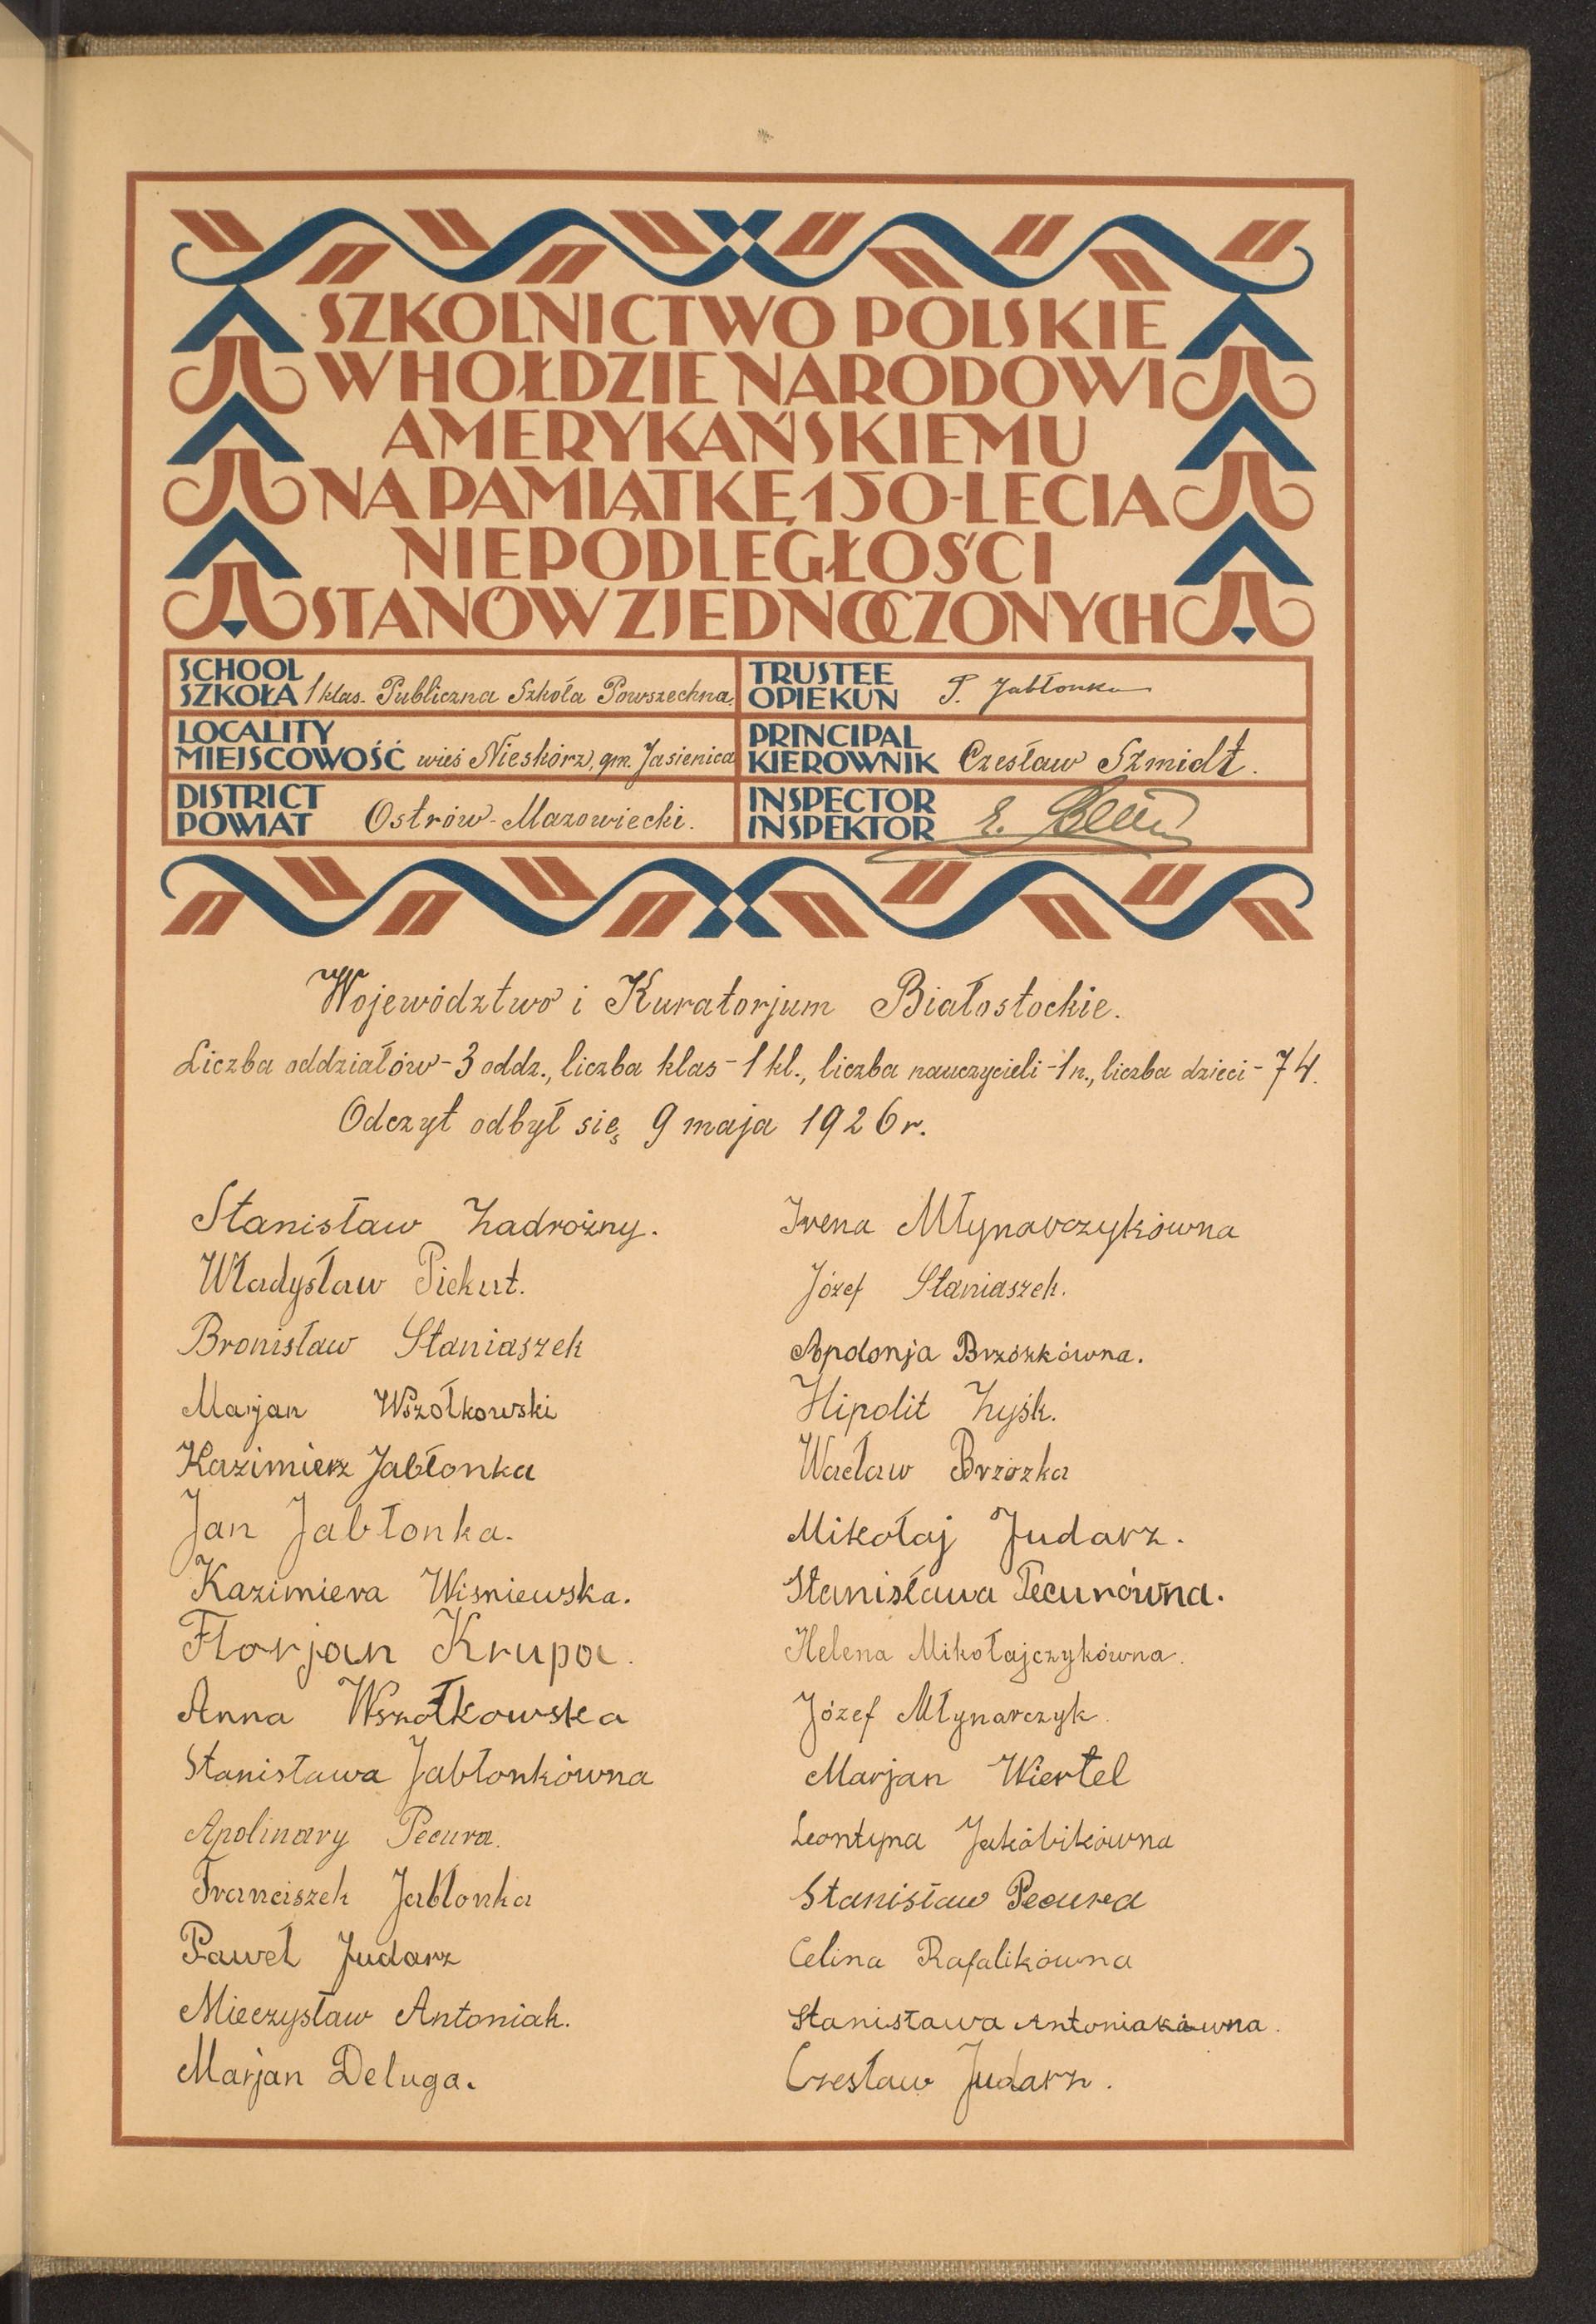 SZKOLNICTWO POLSKIE
W HOŁDZIE NARODOWI
AMERYKAŃSKIEMU
NA PAMIĄTKĘ 150-LECIA
NIEPODLEGŁOŚCI
STANÓW ZJEDNOCZONYCH
SCHOOL
SZKOŁA 1 klas. Publiczna Szkoła Powszechna.
TRUSTEE
OPIEKUN P. Jabłonka
LOCALITY
MIEJSCOWOŚĆ wieś Nieskórz, gm. Jasienica
PRINCIPAL
KIEROWNIK Czesław Szmidt.
DISTRICT
POWIAT Ostrów-Mazowiecki.
INSPECTOR
INSPEKTOR E.
Województwo i Kuratorjum Białostockie.
Liczba oddziałów - 3 oddz., liczba klas - 1 kl., liczba nauczycieli - 1 n., liczba dzieci - 74.
Odczyt odbył się 9 maja 1926 r.
Stanisław Zadrożny.
Władysław Piekut.
Bronisław Staniaszek
Marjan Wszółkowski
Kazimierz Jabłonka
Jan Jabłonka.
Kazimiera Wiśniewska.
Florjan Krupa.
Anna Wszołkowska
Stanisława Jabłonkówna
Apolinary Pecura.
Franciszek Jabłonka
Paweł Judarz
Mieczysław Antoniak.
Marjan Deluga.
Irena Młynarczykówna
Józef Staniaszek.
Apolonja Brzózkówna.
Hipolit Zyśk.
Wacław Brzózka
Mikołaj Judarz.
Stanisława Pecurówna.
Helena Mikołajczykówna.
Józef Młynarczyk.
Marjan Wiertel
Leontyna Jakóbikówna
Stanisław Pecura
Celina Rafalikówna
Stanisława Antoniakówna.
Czesław Judarz.